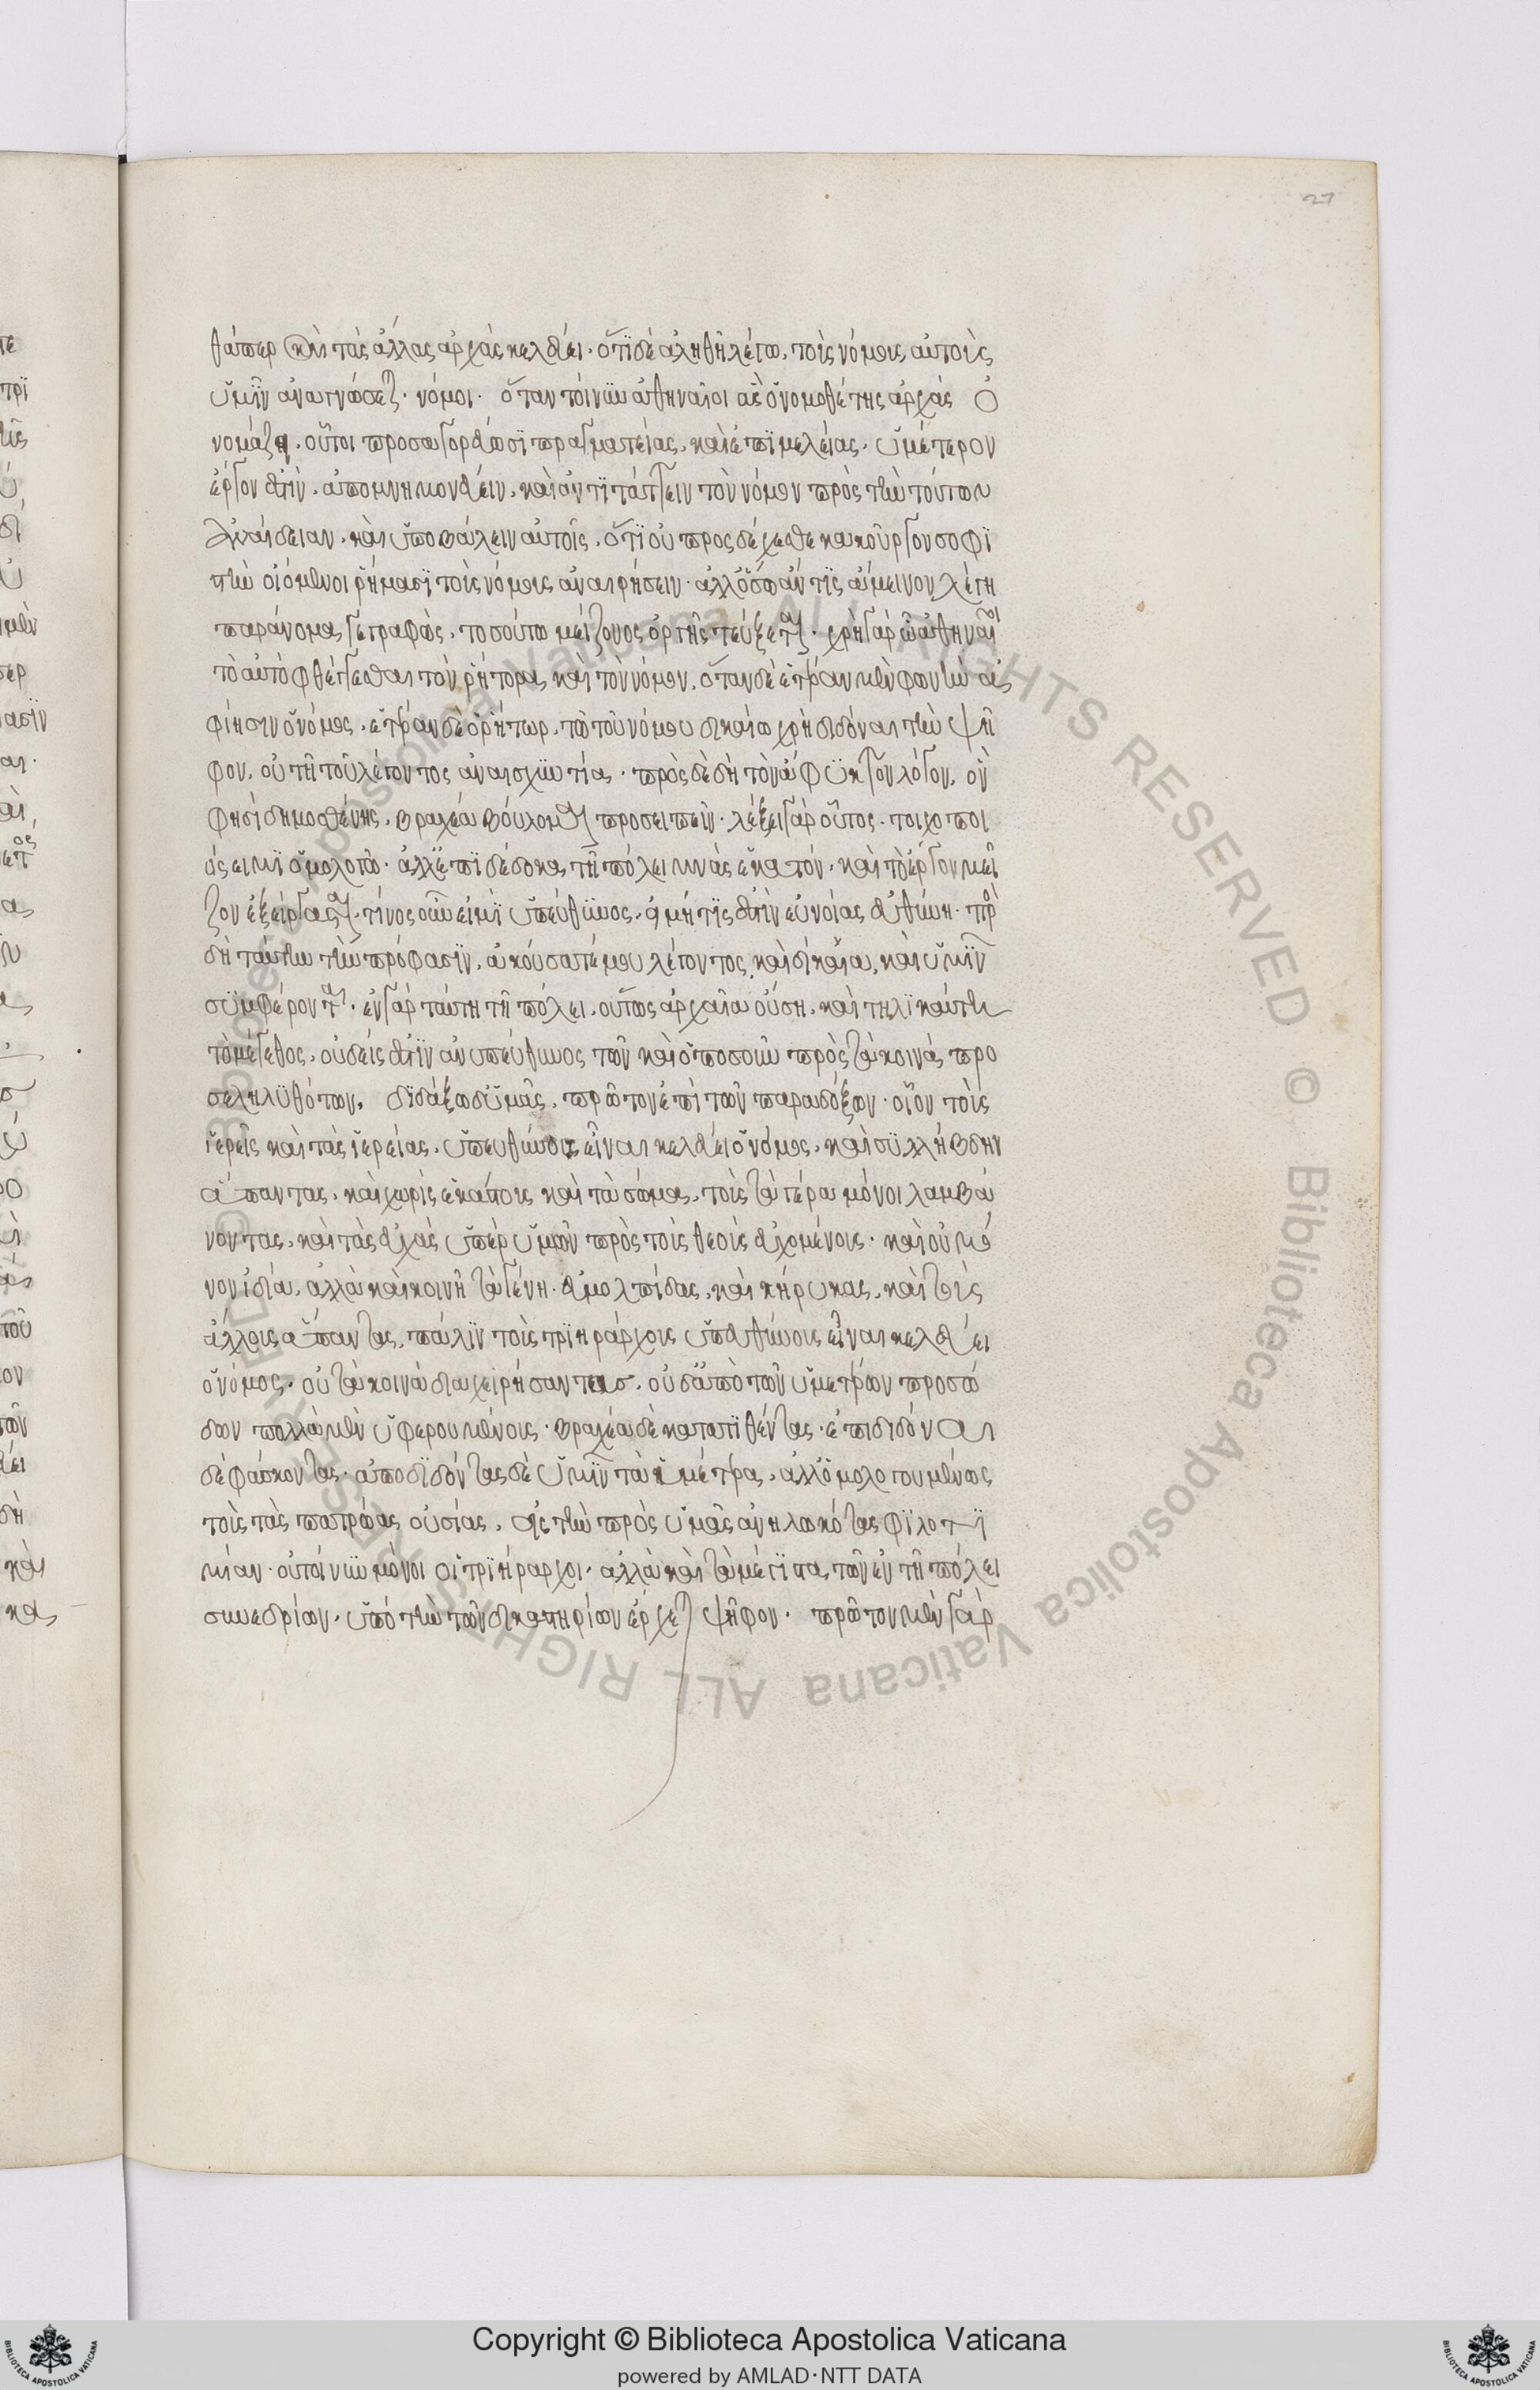 27
θάπερ καὶ τὰς ἄλλας ἀρχὰς κελεύει· ὅτι δὲ ἀληθῆ λέγω, τοὺς νόμους αὐτοὺς
ὑμῖν ἀναγνώσεται· νόμοι· ὅταν τοίνυν ὦ ἀθηναῖοι ἃς ὁ νομοθέτης ἀρχὰς ὀ
νομάζει, οὗτοι προσαγορεύωσι πραγματείας, καὶ ἐπιμελείας, ὑμέτερον
ἔργον ἐστὶν, ἀπομνημονεύειν, καὶ ἀντιτάττειν τὸν νόμον πρὸς τὴν τούτων
ἀναίδειαν, καὶ ὑποβάλλειν αὐτοῖς, ὅτι οὐ προσδέχεσθε κακοῦργον σοφι
στὴν οἰόμενοι ῥήμασι τοὺς νόμους ἀναιρήσειν· ἀλλ' ὅσῳ ἄν τις ἄμεινον λέγῃ
παράνομα γεγραφὼς, τοσούτῳ μείζονος ὀργῆς τεύξεται· χρὴ γὰρ ὦ ἀθηναῖοι
τὸ αὐτὸ φθέγγεσθαι τὸν ῥήτορα καὶ τὸν νόμον, ὅταν δὲ ἑτέραν μὲν φωνὴν ἀ
φίησιν ὁ νόμος, ἑτέραν δὲ ὁ ῥήτωρ, τῷ τοῦ νόμου δικαίῳ χρὴ διδόναι τὴν ψῆ
φον, οὐ τῇ τοῦ λέγοντος ἀναισχυντίᾳ· πρὸς δὲ δὴ τὸν ἄφυκτον λόγον, ὃν
φησὶ δημοσθένης, βραχέα βούλομαι προσειπεῖν· λέξει γὰρ οὗτος· τοιχοποι
ός εἰμι ὁμολογῶ· ἀλλ' ἐπιδέδωκα τῇ πόλει μνᾶς ἑκατόν, καὶ τὸ ἔργον μεῖ
ζον ἐξείργασται, τίνος οὖν εἰμὶ ὑπεύθυνος, εἰ μή τις ἐστὶν εὐνοίας εὐθύνη· πρὸς
δὴ ταύτην τὴν πρόφασιν, ἀκούσατέ μου λέγοντος, καὶ δίκαια, καὶ ὑμῖν
συμφέροντα· ἐν γὰρ ταύτῃ τῇ πόλει, οὕτως ἀρχαίᾳ οὔσῃ, καὶ τηλικαύτῃ
τὸ μέγεθος, οὐδείς ἐστιν ἀνυπεύθυνος τῶν καὶ ὁπωσοῦν πρὸς τὰ κοινὰ προ
σεληλυθότων, διδάξω δ' ὑμᾶς, πρῶτον ἐπὶ τῶν παραδόξων· οἷον τοὺς
ἱερεῖς καὶ τὰς ἱερείας, ὑπευθύνους εἶναι κελεύει ὁ νόμος, καὶ συλλήβδην
ἅπαντας, καὶ χωρὶς ἑκάστους κατὰ σῶμα, τοὺς τὰ γέρα μόνον λαμβά
νοντας, καὶ τὰς εὐχὰς ὑπὲρ ὑμῶν πρὸς τοὺς θεοὺς εὐχομένους· καὶ οὐ μό
νον ἰδίᾳ, ἀλλὰ καὶ κοινῇ τὰ γένη· εὐμολπίδας, καὶ κήρυκας, καὶ τοὺς
ἄλλους ἅπαντας, πάλιν τοὺς τριηράρχους ὑπευθύνους εἶναι κελεύει
ὁ νόμος, οὐ τὰ κοινὰ διαχειρήσαντας, οὐδ' ἀπὸ τῶν ὑμετέρων προσό
δων πολλὰ μὲν ὑφερουμένους· βραχέα δὲ κατατιθέντας· ἐπιδιδόναι
δὲ φάσκοντας· ἀποδιδόντας δὲ ὑμῖν τὰ ὑμέτερα, ἀλλ' ὁμολογουμένως
τοὺς τὰς πατρῴας οὐσίας, εἰς τὴν πρὸς ὑμᾶς ἀνηλωκότας φιλοτι
μίαν· οὐ τοίνυν μόνοι οἱ τριήραρχοι, ἀλλὰ καὶ τὰ μέγιστα τῶν ἐν τῇ πόλει
συνεδρίων, ὑπὸ τὴν τῶν δικαστηρίων ἔρχεται ψῆφον· πρῶτον μὲν γὰρ
Copyright © Biblioteca Apostolica Vaticana
powered by AMLAD·NTT DATA